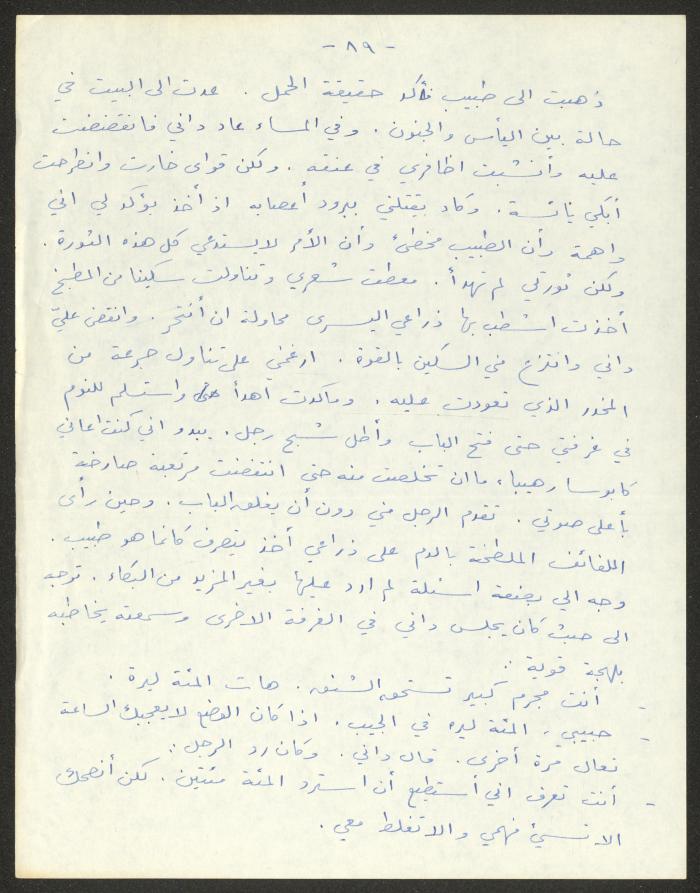 - ٨٩ -
ذهبت الى طبيب فأكد حقيقة الحمل . عدت الى البيت في
حالة بين اليأس والجنون . وفي المساء عاد داني فانقضضت
عليه وأنشبت اظافري في عنقه . ولكن قواي خارت وانطرحت
أبكي يائسة . وكاد يقتلني ببرود أعصابه اذ أخذ يؤكد لي اني
واهمة وأن الطبيب مخطئ وأن الأمر لا يستدعي كل هذه الثورة .
ولكن ثورتي لم تهدأ . معطت شعري وتناولت سكينا من المطبخ
أخذت اشطب بها ذراعي اليسرى محاولة ان أنتحر . وانقض عليّ
داني وانتزع مني السكين بالقوة . ارغمني على تناول جرعة من
المخدر الذي تعودت عليه . وما كدت اهدأ واستسلم للنوم
في غرفتي حتى فتح الباب وأطل شبح رجل . يبدو اني كنت اعاني
كابوسا رهيبا ، ما ان تخلصت منه حتى انتفضت مرتعبة صارخة
بأعلى صوتي . تقدم الرجل مني دون أن يغلق الباب . وحين رأى
اللفائف الملطخة بالدم على ذراعي أخذ يتصرف كأنما هو طبيب .
وجه الي بضعة اسئلة لم ارد عليها بغير المزيد من البكاء . توجه
الى حيث كان يجلس داني في الغرفة الاخرى وسمعته يخاطبه
بلهجة قوية :
- أنت مجرم كبير تستحق الشنق . هات المئة ليرة .
- حبيبي ، المئة ليره في الجيب . اذا كان الوضع لا يعجبك الساعة
تعال مرة أخرى . قال داني . وكان رد الرجل :
- أنت تعرف اني أستطيع أن استرد المئة مئتين . لكن أنصحك
الا تسيئ فهمي والا تغلط معي .